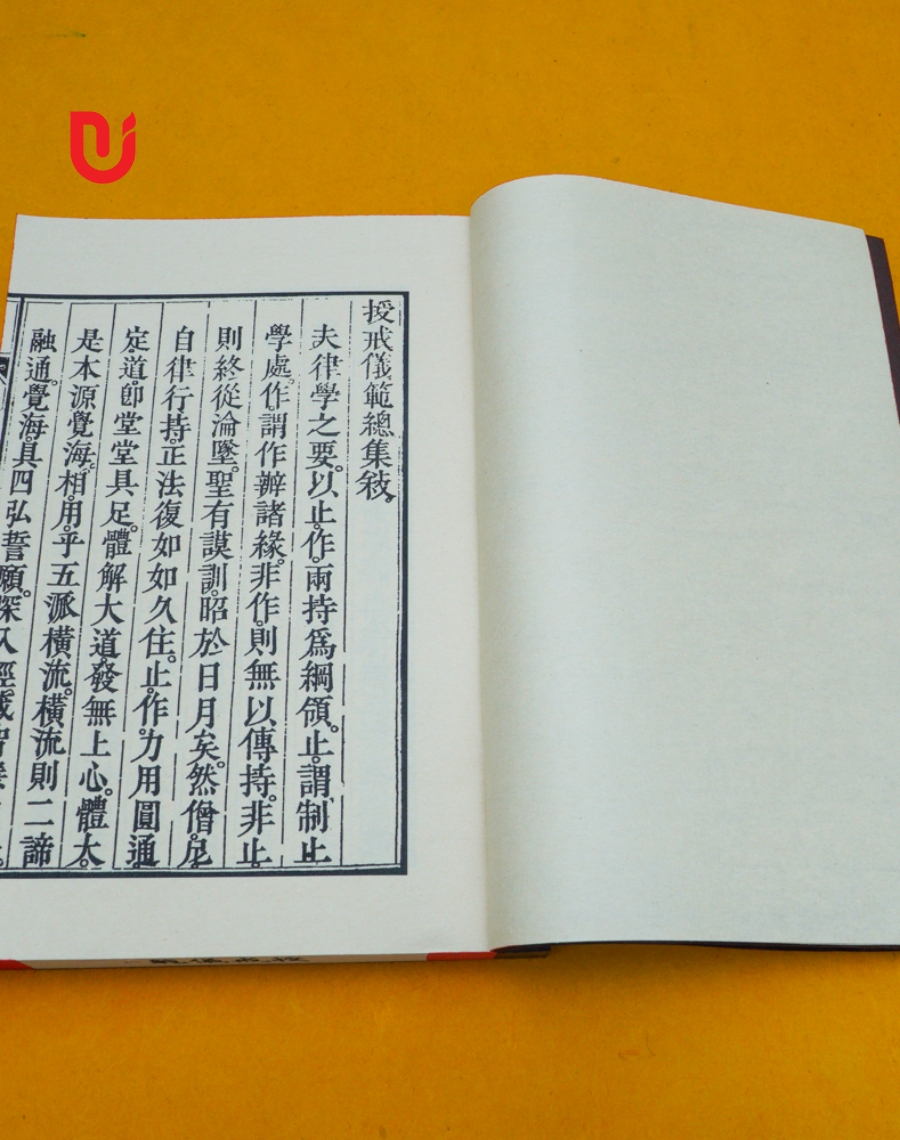 授戒儀範總集敍。
夫律學之要。以止。作。兩持爲綱領。止。謂制止
學處。作。謂作辦諸緣。非作。則無以傳持。非止。
則終從淪墜。聖有謨訓。昭於日月矣。然僧尼。
自律行持。正法復如如久住。止。作。力用圓通
定。道。卽堂堂具足。體解大道。發無上心。體大。
是本源覺海。相。用。乎五派橫流。橫流則二諦
融通。覺海。具四弘誓願。深入經藏